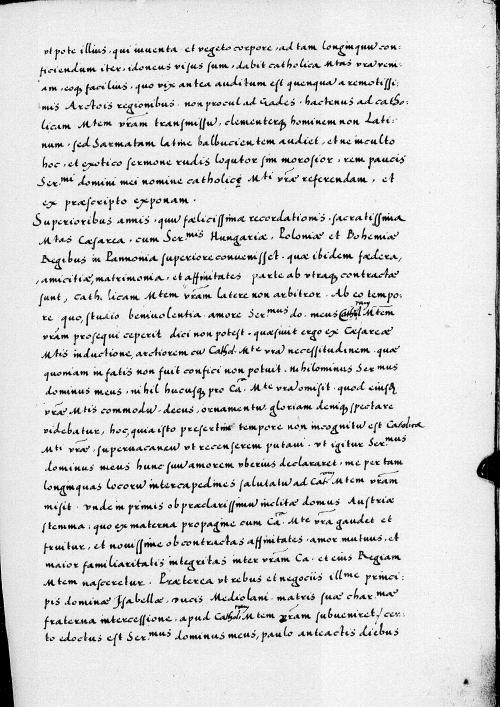 vt pote illius, qui iuuenta et vegeto corpore, ad tam longinquu con:
ficiendum iter, idoneus visus sum, dabit catholica Mtas vra veni:
am, eoq; facilius, quo vix antea auditum est quenqua a remotissi:
mis Arctois regionibus non procul ad Gades, hactenus ad catho:
licam Mtem vram transmissu, clementerq; hominem non Lati:
num, sed Sarmatam latine balbucientem audiet, et ne inculto
hoc, et exotico sermone rudis loqutor sim morosior, rem paucis
Ser.mi domini mei nomine catholicę Mti vrae referendam, et
ex praescripto exponam.
Superioribus annis, quu faelicissimae recordationis, sacratissima
Mtas Caesarea, cum Ser.mis Hungariae, Poloniae et Bohemiae
Regibus in Pannonia superiore convenisset, quae ibidem faedera,
amicitiae, matrimonia, et affinitates parte ab vtraq; contractae
sunt, Cath. licam Mtem vram latere non arbitror. Ab eo tempo:
re quo, studio beniuolentia amore Ser.mus do. meus Cathol. Mtem
vram prosequi ceperit dici non potest, quaesiuit ergo ex Caesareae
Mtis inductione, arctiorem cu Cathol. Mte vra necessitudinem, quae
quoniam in fatis non fuit confici non potuit, nihilominus Ser mus
dominus meus, nihil hucusq; pro Ca. Mte vra omisit, quod eiusq;
vrae Mtis commodu, decus, ornamentu, gloriam deniq; spectare
videbatur, hoc, quia isto presertim tempore non incognitu est Catholica
Mti vrae, superuacaneu vt recenserem putaui. vt igitur Ser.mus
dominus meus hunc suu amorem vberius declararet, me per tam
longinquas locoru intercapedines salutatu ad Cat. Mtem vram
misit. vnde in primis ob praeclarissimu inclitae domus Austriae
stemma, quo ex materna propagine cum Ca. Mte vra gaudet et
fruitur, et nouissime ob contractas affinitates, amor mutuus, et
maior familiaritatis integritas inter vram Ca. et eius Regiam
Mtem nasceretur. Praeterea vt rebus et negociis illme princi:
pis dominae Isabellae, ducis Mediolani, matris suae char mae
fraterna intercessione, apud Cathol. Mtem vram subueniret, cer:
to edoctus est Ser.mus dominus meus, paulo anteactis diebus